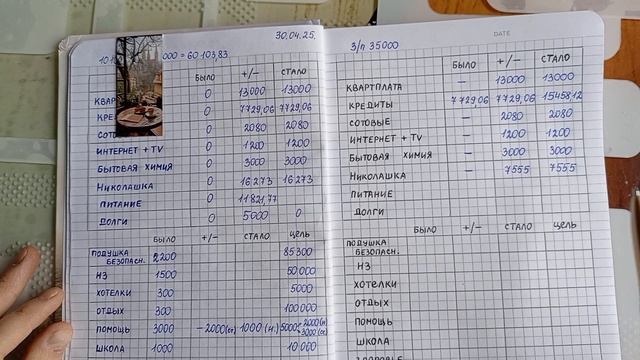 30.04.25.
000 = 60 103,83
БЫЛО +/− СТАЛО
0 13000 13000
КРЕ 0 7729,06 7729,06
СОТОВ 0 2080 2080
ИНТЕРНЕТ + TV 0 1200 1200
БЫТОВАЯ ХИМИЯ 0 3000 3000
НИКОЛАШКА 0 16273 16273
ПИТАНИЕ 0 11821,77
ДОЛГИ 0 5000 0
БЫЛО +/− СТАЛО ЦЕЛЬ
ПОДУШКА БЕЗОПАСН. 2,200 85300
НЗ 1500 50000
ХОТЕЛКИ 300 5000
ОТДЫХ 300 100000
ПОМОЩЬ 3000 −2000(с.) 1000 (н.) 5000
ШКОЛА 1000 10000
З/П 35000
DATE
БЫЛО +/− СТАЛО
КВАРТПЛАТА − 13000 13000
КРЕДИТЫ 7729,06 7729,06 15458,12
СОТОВЫЕ − 2080 2080
ИНТЕРНЕТ + TV − 1200 1200
БЫТОВАЯ ХИМИЯ − 3000 3000
НИКОЛАШКА − 7555 7555
ПИТАНИЕ
ДОЛГИ
БЫЛО +/− СТАЛО ЦЕЛЬ
ПОДУШКА БЕЗОПАСН.
НЗ
ХОТЕЛКИ
ОТДЫХ
ПОМОЩЬ
ШКОЛА